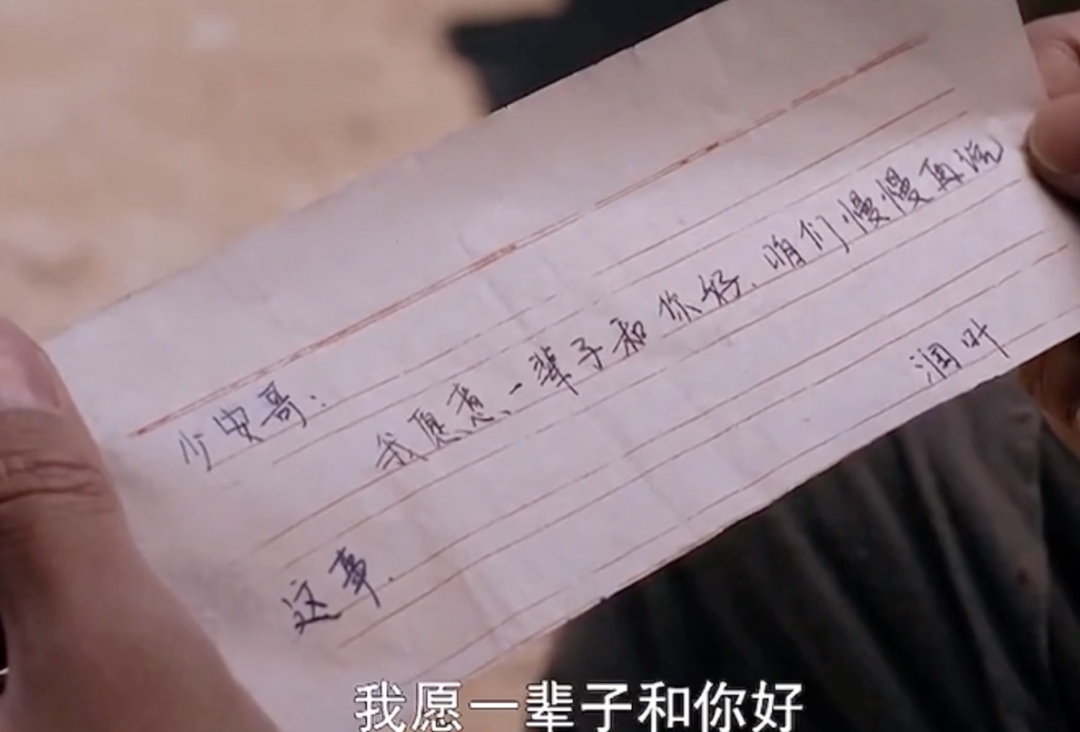 少安哥:
我愿意一辈子和你好.咱们慢慢再说
这事.
润叶
我愿一辈子和你好